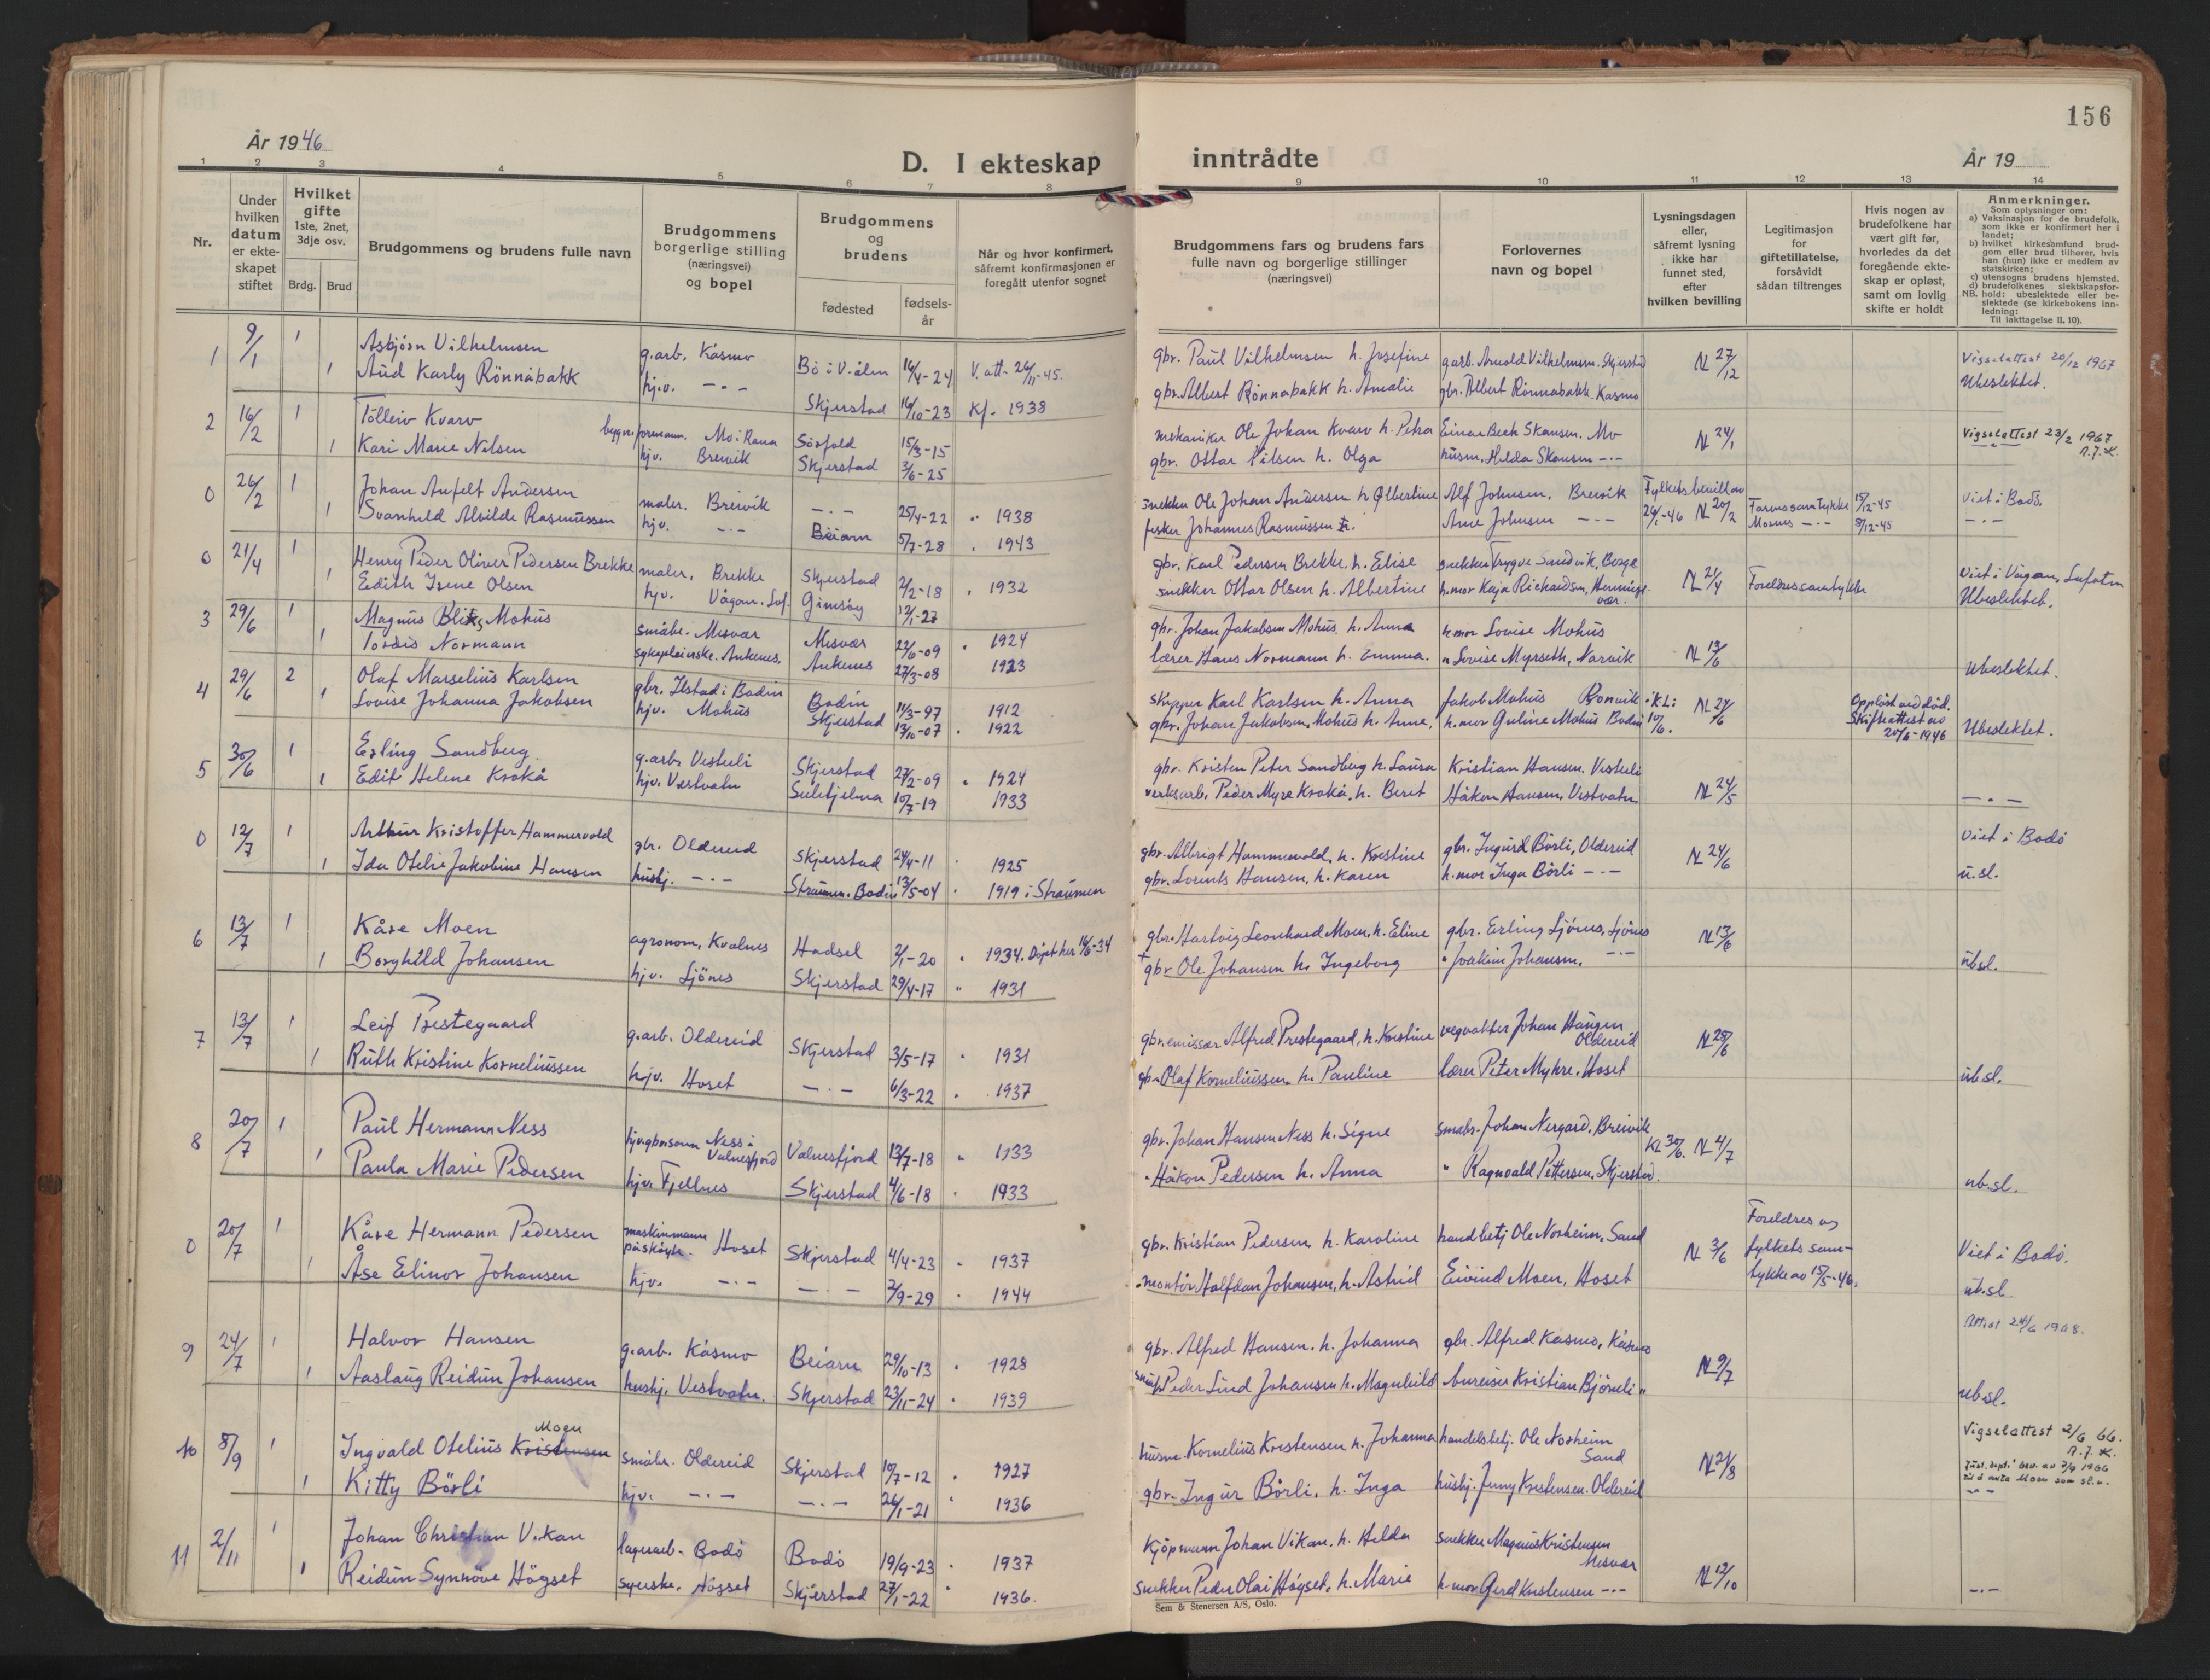 156
År 1946
D. I ekteskap inntrådte
År 19
1 2 3 4 5 6 7 8 9 10 11 12 13 14
Nr.
Under hvilken datum er ekteskapet stiftet
Hvilket gifte 1ste, 2net, 3dje osv.
Brdg. Brud
Brudgommens og brudens fulle navn
Brudgommens borgerlige stilling (næringsvei) og bopel
Brudgommens og brudens
fødested
fødselsår
Når og hvor konfirmert, såfremt konfirmasjonen er foregått utenfor sognet
Brudgommens fars og brudens fars fulle navn og borgerlige stillinger (næringsvei)
Forlovernes navn og bopel
Lysningsdagen eller, såfremt lysning ikke har funnet sted, efter hvilken bevilling
Legitimasjon for giftetillatelse, forsåvidt sådan tiltrenges
Hvis nogen av brudefolkene har vært gift før, hvorledes da det foregående ekteskap er opløst, samt om lovlig skifte er holdt
Anmerkninger.
Som oplysninger om:
a) Vaksinasjon for de brudefolk, som ikke er konfirmert her i landet;
b) hvilket kirkesamfund brudgom eller brud tilhører, hvis han (hun) ikke er medlem av statskirken;
c) utensogns brudens hjemsted.
d) brudefolkenes slektskapsforhold: ubeslektede eller beslektede (se kirkebokens innledning:
NB.
Til iakttagelse II. 10).
1 9/1 1 Asbjörn Vilhelmsen g.arb. Kåsmo Bö i V-ålen 16/4-24 V.att. 26/11-45. gbr. Paul Vilhelmsen h. Josefine g.arb. Arnold Vilhelmsen. Skjerstad N 27/12 Vigselattest 20/12 1967
1 Aud Karly Rönnåbakk hjv. -"- Skjerstad 16/10-23 Kf. 1938 gbr. Albert Rönnåbakk h. Amalie gbr. Albert Rönnåbakk. Kåsmo Ubeslektet.
2 16/2 1 Tölleiv Kvarv formann. Mo i Rana Sörfold 15/3-15 mekaniker Ole Johan Kvarv h. Petra Einar Bech Skansen. Mo N 24/1 Vigselattest 23/2 1967
1 Kari Marie Nilsen hjv. Breivik Skjerstad 3/6-25 gbr. Ottar Nilsen h. Olga husm. Hilda Skansen -"-
0 26/2 1 Johan Anfelt Andersen maler. Breivik -"- 25/4-22 " 1938 snekker Ole Johan Andersen h Albertine Alf Johnsen. Breivik Fylkets bevill av Farens samtykke 15/12-45 Viet i Bodö.
1 Svanhild Alvilde Rasmussen hjv. -"- Beiarn 5/7-28 " 1943 fisker Johannes Rasmussen Arne Johnsen -"- 26/1-46 N 20/2 Morens -"- 8/12-45 -"-
0 21/4 1 Henry Peder Oliver Pedersen Brekke maler. Brekke Skjerstad 2/2-18 " 1932 gbr. Karl Pedersen Brekke. h. Elise snekker Trygve Sandvik, Borge N 21/4 Foreldres samtykke Viet i Vågan, Lofoten
1 Edith Irene Olsen hjv. Vågan. Lof. Gimsöy 12/1-27 snekker Ottar Olsen h. Albertine h.mor Kaja Rickardsen, Henningsvær. Ubeslektet.
3 29/6 1 Magnus Mohus småbr. Misvær Misvær 22/6-09 " 1924 gbr. Johan Jakobsen Mohus. h. Anna h.mor Lovise Mohus N 13/6
1 Tordis Normann sykepleierske. Ankenes. Ankenes 27/3-08 1923 lærer Hans Normann h. Emma. " Lovise Myrseth, Narvik Ubeslektet.
4 29/6 2 Olaf Marselius Karlsen gbr. Ilstad i Bodin Bodin 14/3-97 1912 skipper Karl Karlsen h. Anna Jakob Mohus N 27/6 Opplöst ved död. Skifteattest av 20/6-1946
1 Lovise Johanna Jakobsen hjv. Mohus Skjerstad 13/10-07 " 1922 gbr. Johan Jakobsen, Mohus h. Anne. h.mor Guline Mohus Bodin 10/6. Ubeslektet.
5 30/6 1 Erling Sandberg g.arb. Vestvli Skjerstad 27/2-09 " 1924 gbr. Kristen Peter Sandberg h. Laura Kristian Hansen. Vestvli N 24/5
1 Edit Helene Krokå hjv. Vestvatn Sulitjelma 10/7-19 1933 verksarb. Peder Myre Krokå. h. Beret Håkon Hansen. Vestvatn. -"-
0 12/7 1 Arthur Kristoffer Hammervold gbr. Oldereid Skjerstad 24/4-11 " 1925 gbr. Albrigt Hammervold, h. Kristine gbr. Ingurd Börli, Oldereid N 24/6 Viet i Bodö
1 Ida Otelie Jakobine Hansen hushj. -"- Straumen. Bodin 13/5-04 " 1919 i Straumen gbr. Lorents Hansen, h. Karen h.mor Inga Börli -"- u.sl.
6 13/7 1 Kåre Moen agronom, Kvalnes Hadsel 2/1-20 " 1934. Döpt her 16/6-34 gbr. Hartvig Leonhard Moen, h. Eline gbr. Erling Ljönes, Ljönes N 13/6
1 Borghild Johansen hjv. Ljönes Skjerstad 29/4-17 " 1931 gbr Ole Johansen h. Ingeborg " Joakim Johansen. -"- ubsl.
7 13/7 1 Leif Prestegaard g.arb. Oldereid Skjerstad 3/5-17 " 1931 gbr. emissær Alfred Prestegaard, h. Kristine vegvokter Johan Haugen Oldereid N 28/6
1 Ruth Kristine Korneliussen hjv. Hoset -"- 6/3-22 " 1937 gbr. Olaf Korneliussen. h. Pauline lærer Peter Myhre. Hoset ub.sl.
8 20/7 1 Paul Hermann Ness Ness i Valnesfjord Valnesfjord 13/7-18 " 1933 gbr. Johan Hansen Ness h. Signe småbr. Johan Nergård, Breivik Kl 30/6. N 4/7
1 Paula Marie Pedersen hjv. Fjellnes Skjerstad 4/6-18 " 1933 " Håkon Pedersen h. Anna " Ragnvald Pettersen. Skjerstad. ub.sl.
0 20/7 1 Kåre Hermann Pedersen maskinmann på sköyte. Hoset Skjerstad 4/4-23 " 1937 gbr. Kristian Pedersen, h. Karoline handbetj Ole Norheim, Sand N 3/6 Foreldres og fylkets samtykke av 15/5-46. Viet i Bodö.
1 Åse Elinor Johansen hjv. -"- -"- 2/9-29 " 1944 montör Halfdan Johansen, h. Astrid Eivind Moen, Hoset ub.sl
9 24/7 1 Halvor Hansen g.arb. Kåsmo Beiarn 29/10-13 " 1928 gbr. Alfred Hansen. h. Johanna gbr. Alfred Kåsmo, Kåsmo N 9/7 Attest 24/6 1968.
1 Aaslaug Reidun Johansen hushj. Vestvatn. Skjerstad 23/11-24 " 1939 Peder Lind Johansen h. Magnhild bureiser Kristian Björnli " ub.sl.
10 8/9 1 Ingvald Otelius Kristensen Moen småbr. Oldereid Skjerstad 10/7-12 " 1927 husm. Kornelius Kristensen h. Johanna handelsbetj. Ole Norheim Sand N 21/8 Vigselattest 2/6 66.
1 Kitty Börli hjv. -"- -"- 26/1-21 " 1936 gbr. Ingur Börli, h. Inga hushj. Jenny Kristensen. Oldereid
11 2/11 1 Johan Christian Vikan lagerarb. Bodö Bodö 19/9-23 " 1937 Kjöpmann Johan Vikan. h. Helda snekker Magnus Kristensen Misvær N 12/10
1 Reidun Synnöve Högset syerske. Högset Skjerstad 27/1-22 " 1936. snekker Peder Olai Högset. h. Marie h.mor Gerd Kristensen -"- -"-
Sem & Stenersen A/S, Oslo.